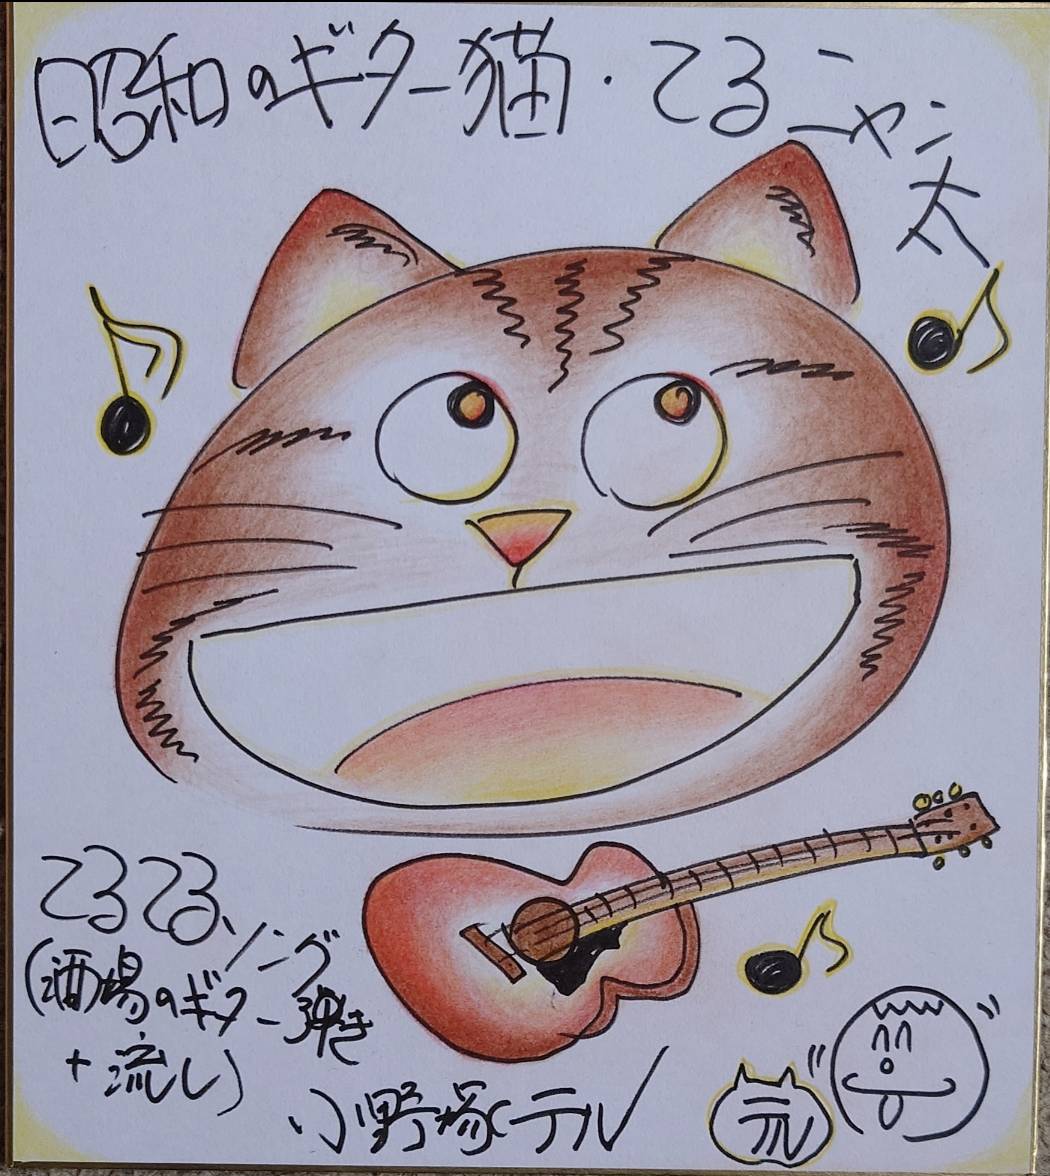 昭和のギター猫・てるニャン太
てるてるソング
(酒場のギター弾き
+流し)
小野塚テル
テル